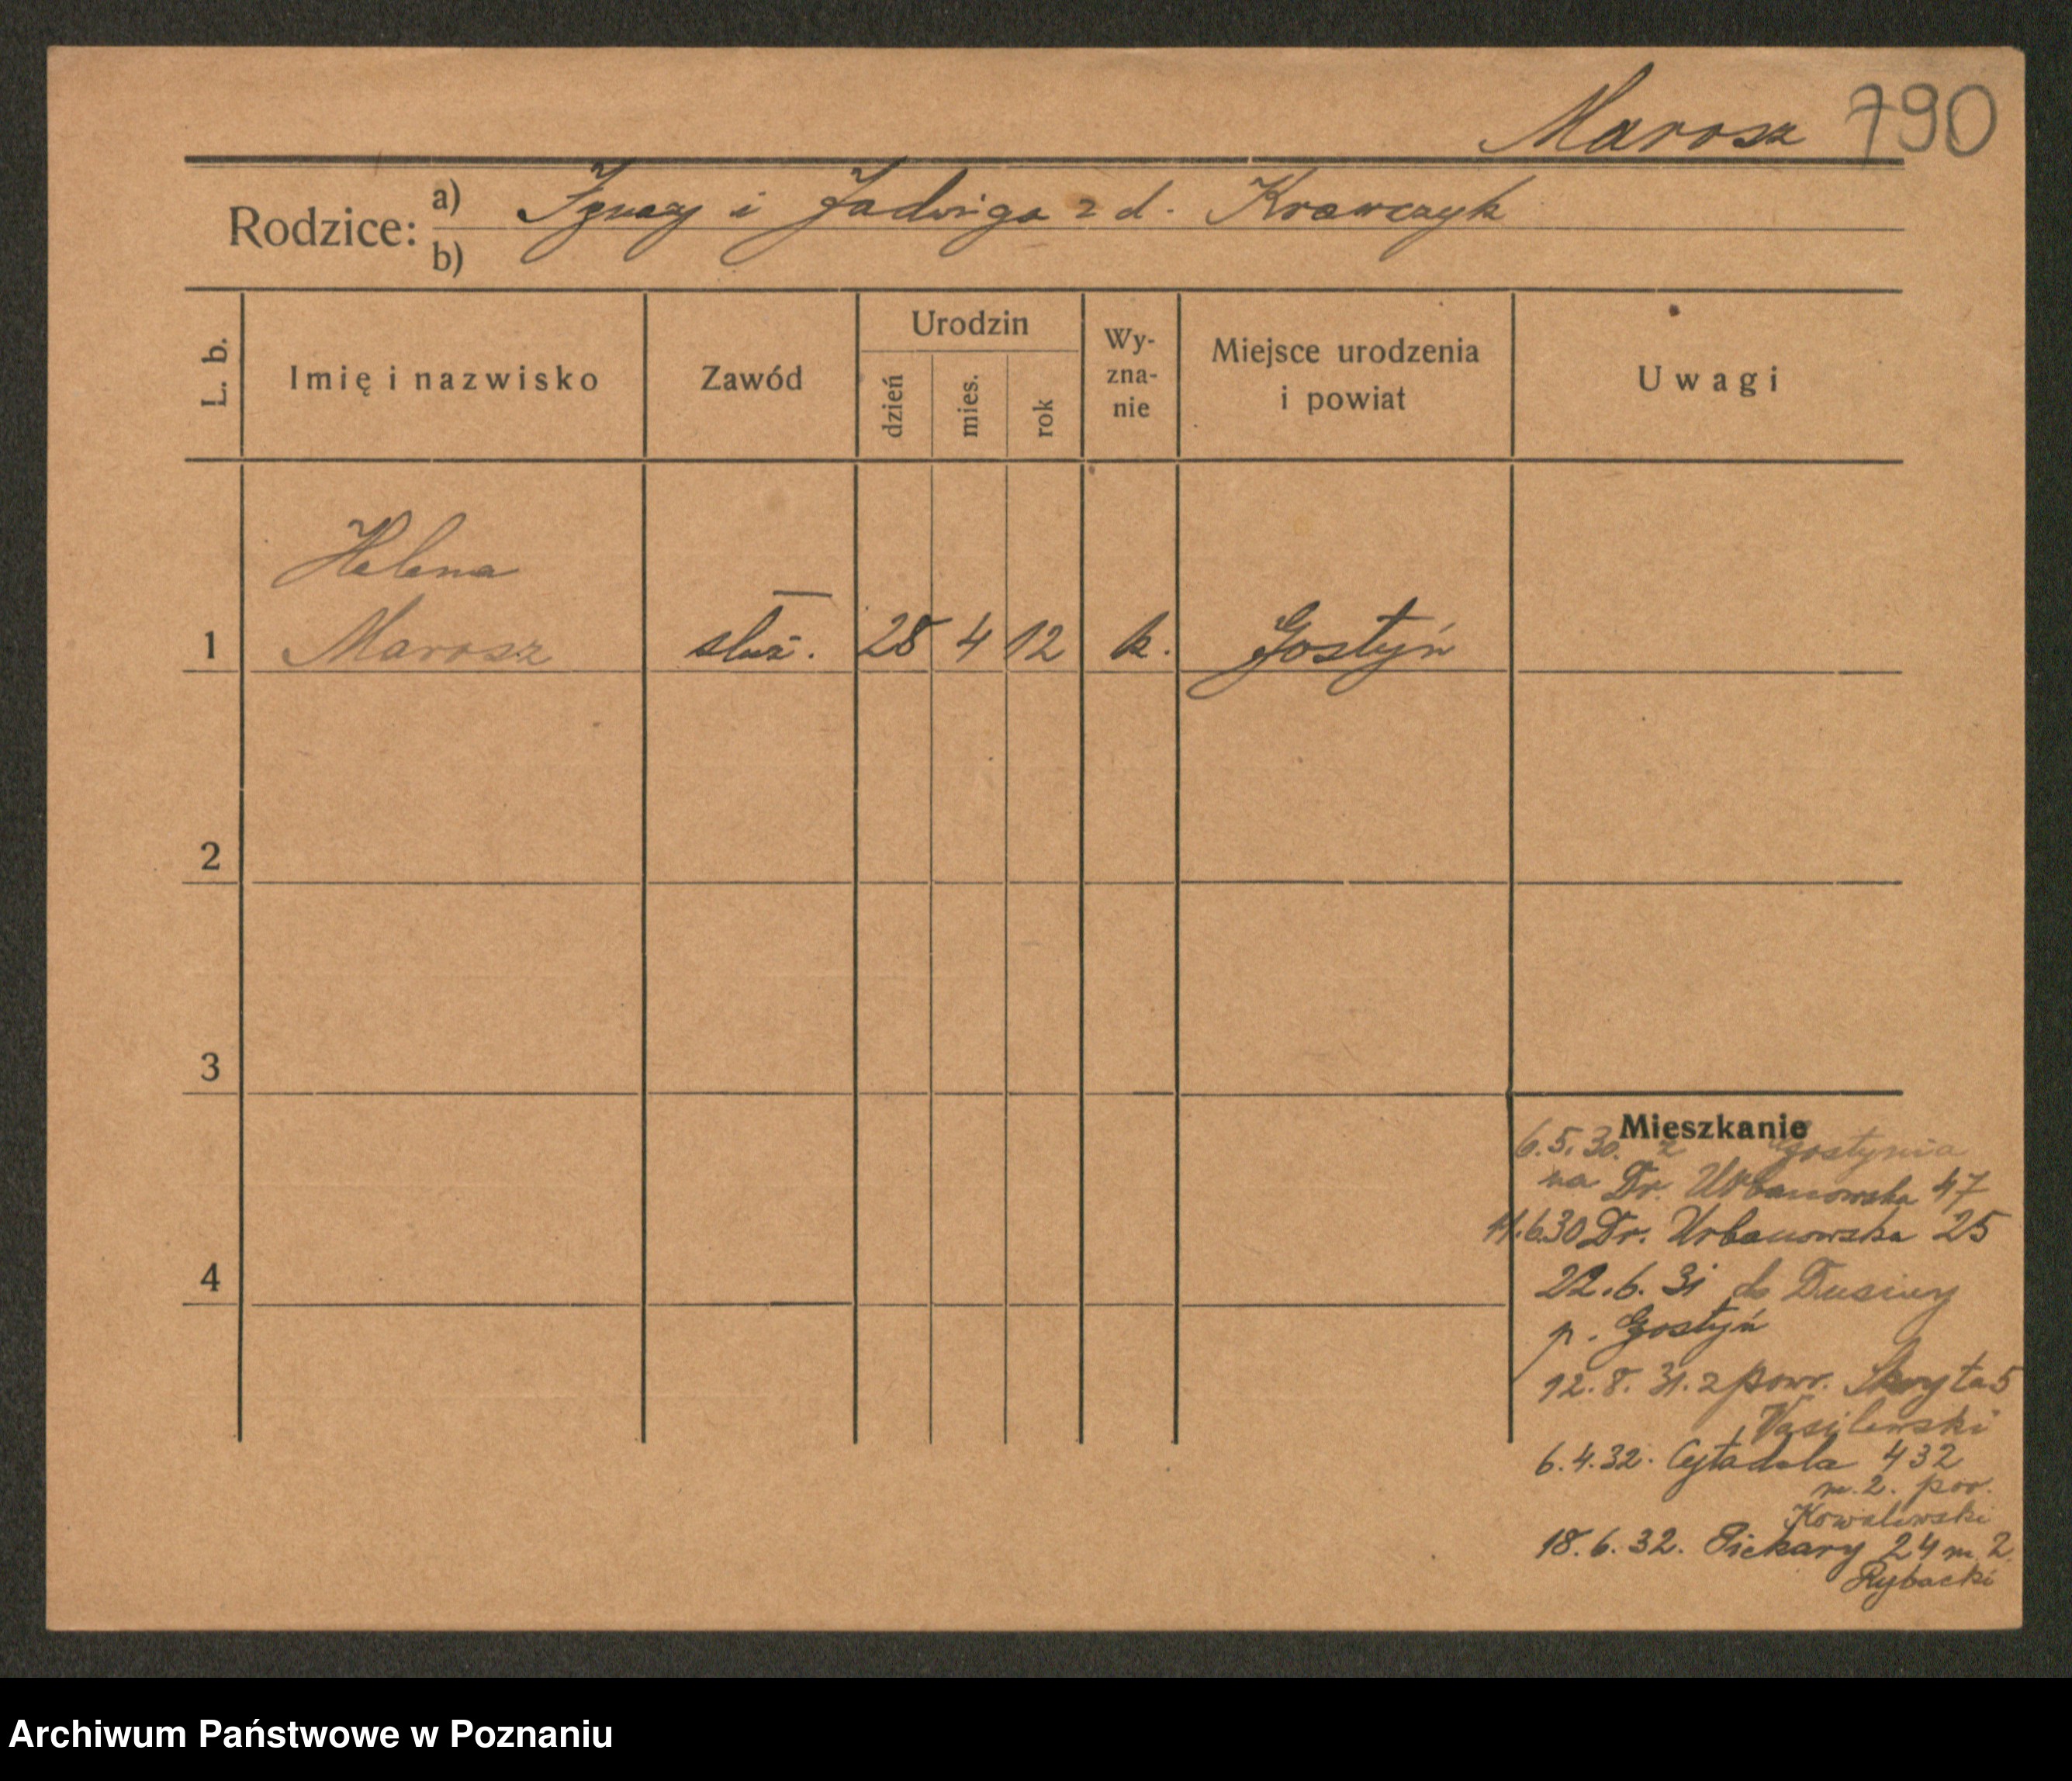 Marosz 790
Rodzice: a) Ignacy i Jadwiga z d. Krawczyk
b)
L. b.
Imię i nazwisko
Zawód
Urodzin
dzień
mies.
rok
Wy-
zna-
nie
Miejsce urodzenia
i powiat
Uwagi
Helena
1 Marosz służ. 28 4 12 k. Gostyń
2
3
4
Mieszkanie
6.5.30. z Gostynia
na Dr. Urbanowska 47
11.6.30 Dr. Urbanowska 25
22.6.31 do Dusiny
p. Gostyń
12.8.31. z powr. Skryta 5
Wasilewski
6.4.32. Cytadela 432
m. 2. por.
Kowalewski
18.6.32. Piekary 24 m. 2.
Rybacki
Archiwum Państwowe w Poznaniu